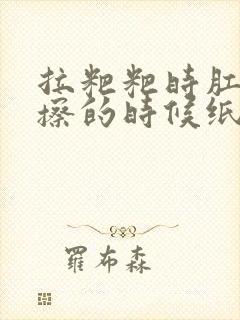 拉粑粑時肛
擦的時候紙
羅布森